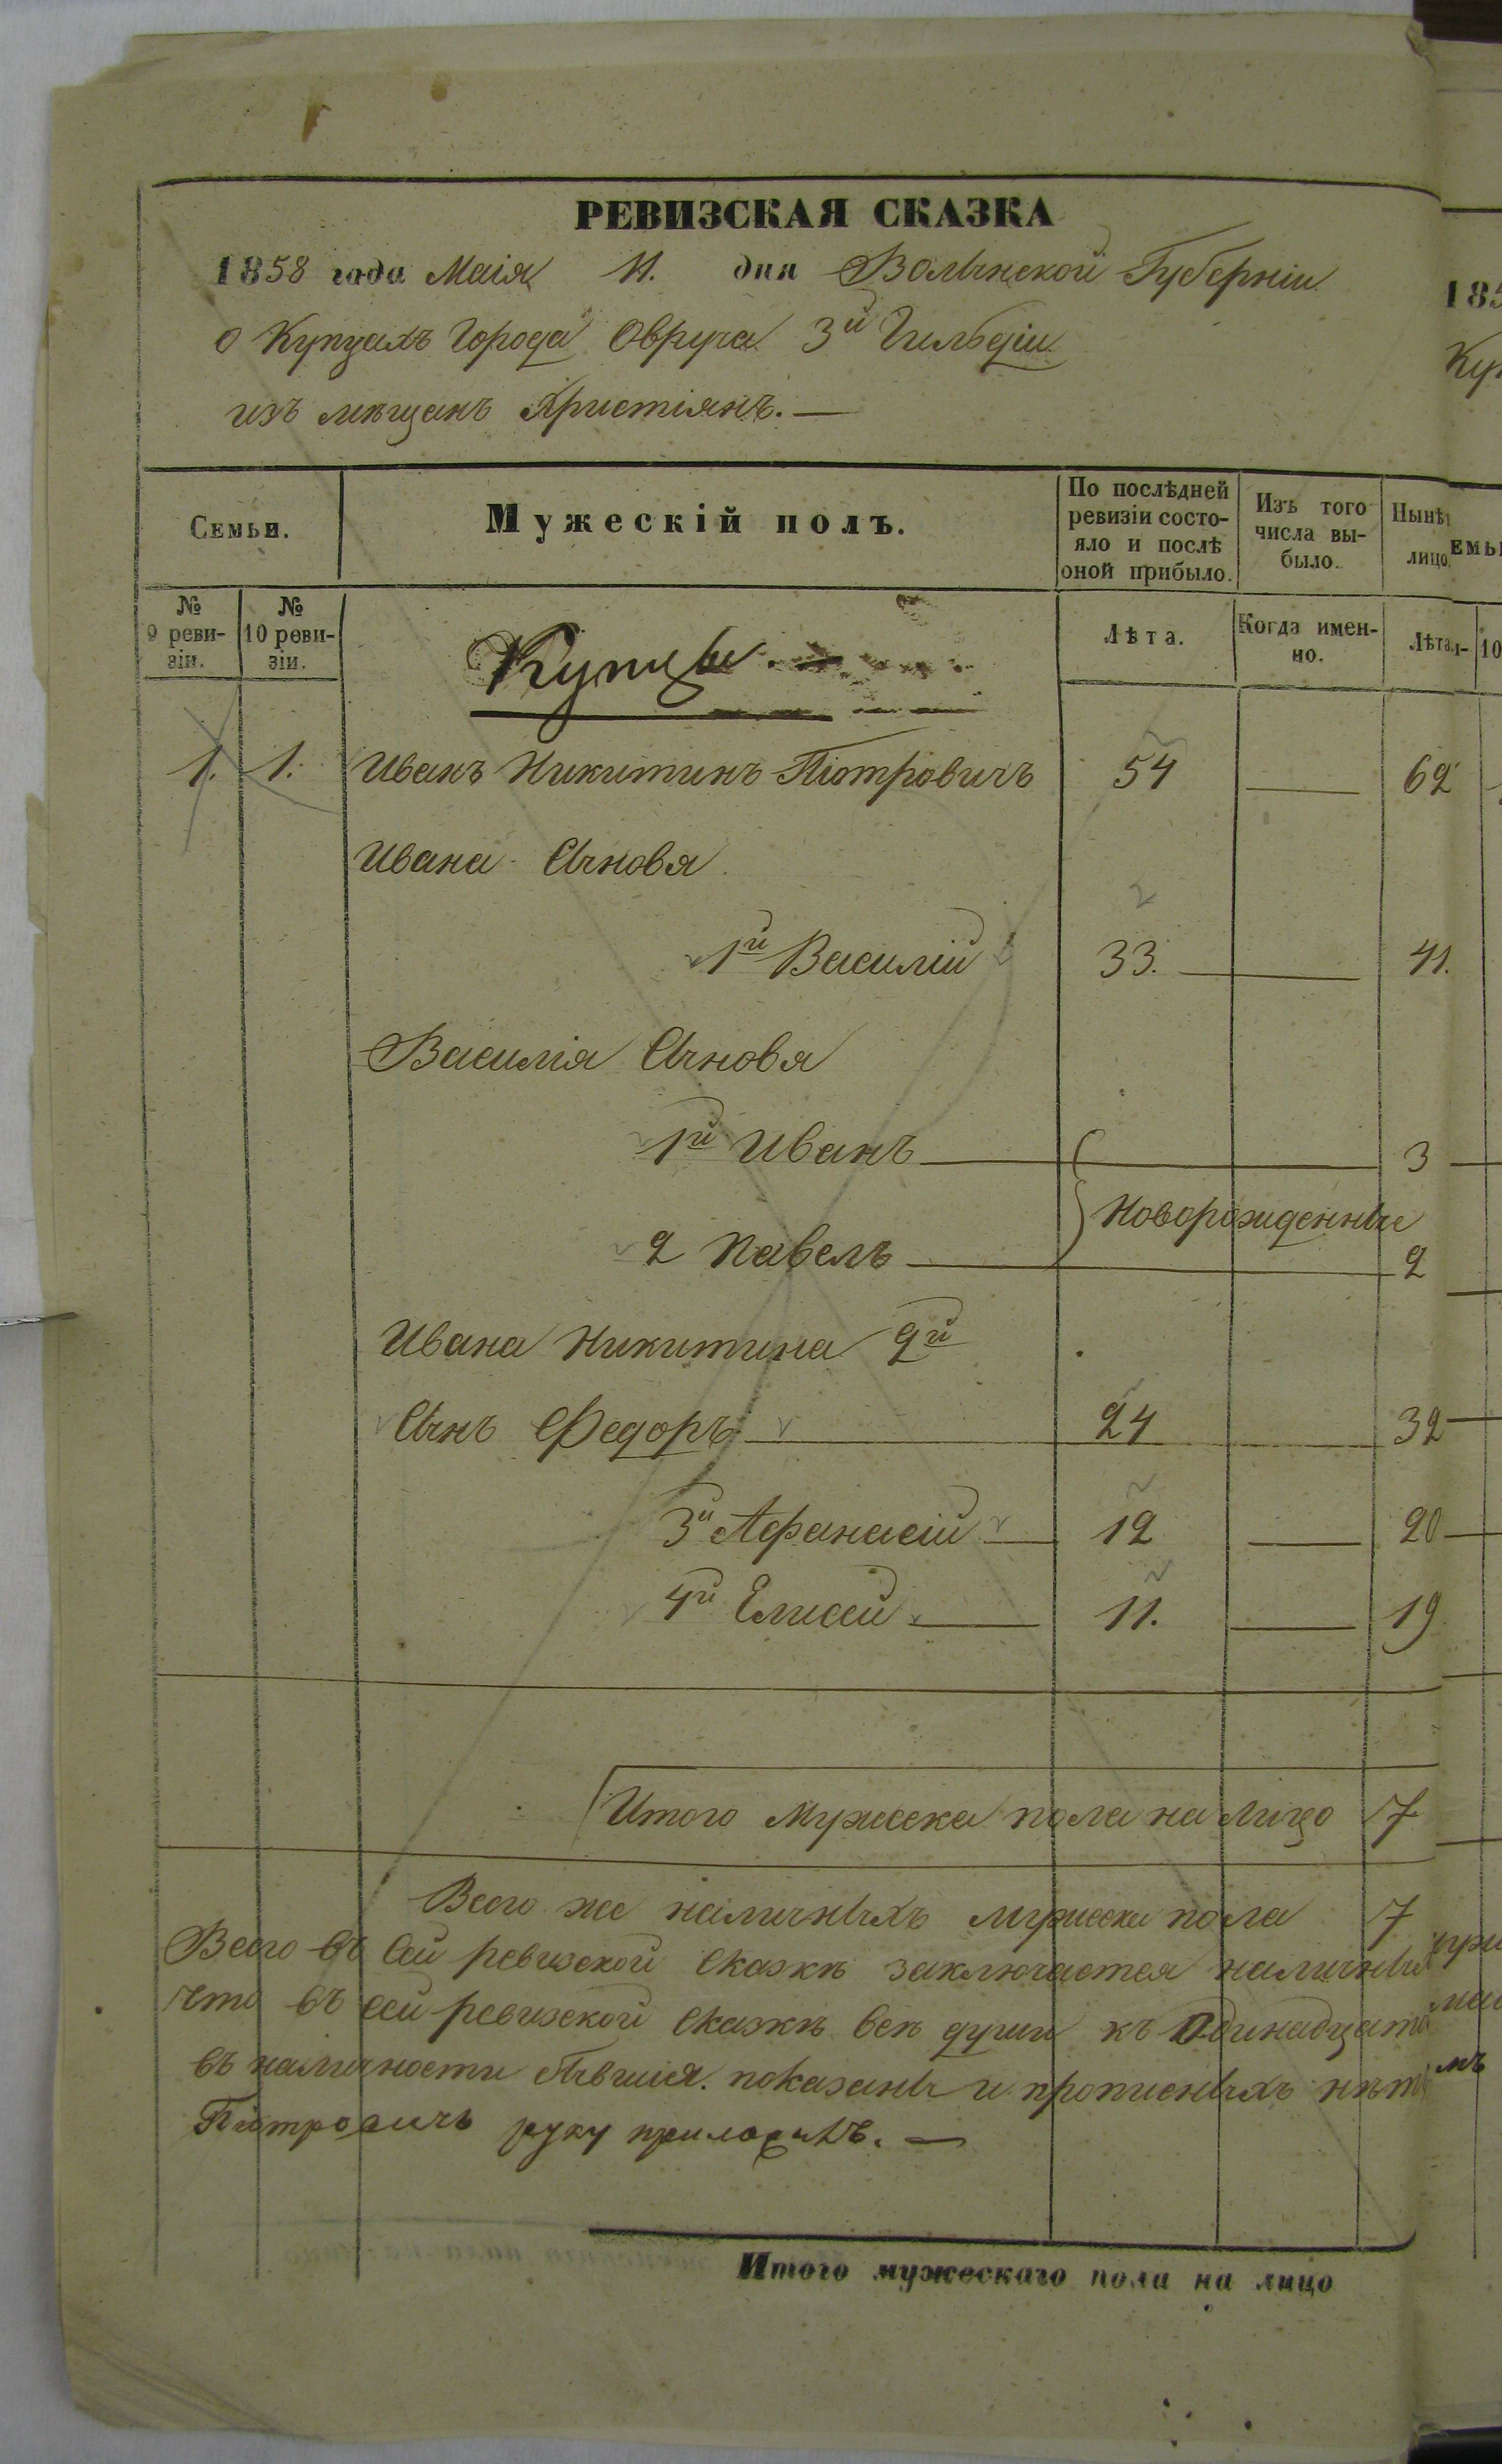 РЕВИЗСКАЯ СКАЗКА
1858 года Маія 11. дня Волынской Губерніи
о Купцахъ Города Овруча 3й Гильдіи
изъ мѣщанъ Христіянъ. —
Семьи.
Мужескій полъ.
По послѣдней
ревизіи состо-
яло и послѣ
оной прибыло.
Изъ того
числа вы-
было.
Нынѣ
лицо
№
9 реви-
зіи.
№
10 реви-
зіи.
Купцы
Лѣта.
Когда имен-
но.
Лѣта
1. 1. Иванъ Никитинъ Піотровичъ 54 — 62
Ивана Сыновя
1й Василій 33. — 41.
Василія Сыновя
1й Иванъ — 3
Новорожденные
2 Павелъ — 2
Ивана Никитина 2й
Сынъ Федоръ — 24 — 32
3й Афанасій — 12 — 20
4й Елисей — 11. — 19
Итого Мужеска пола на лицо 7
Всего же наличныхъ мужеска пола 7
Всего въ сей ревизской сказкѣ заключается наличных
что въ сей ревизской сказкѣ всѣ души къ Одинадцато
въ наличности показаны и прописныхъ нѣт
Піотровичъ руку приложилъ. —
Итого мужескаго пола на лицо
185
Ку
емьи
10